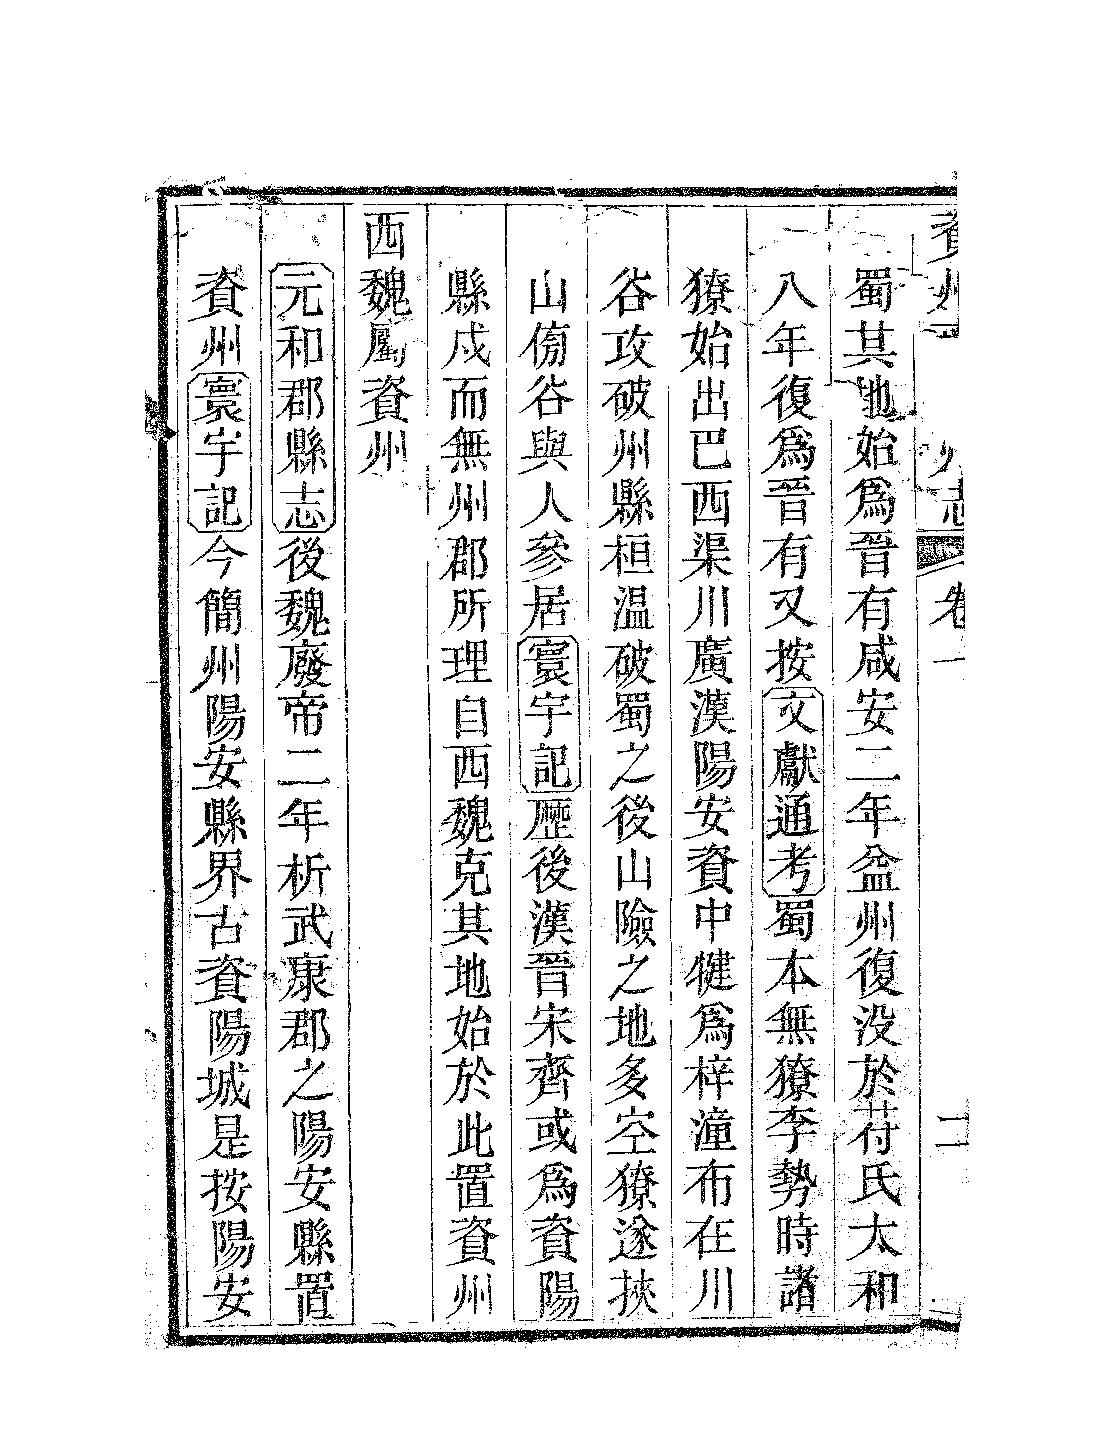 資州 州志 卷一 二
蜀其地始爲晉有咸安二年益州復没於苻氏太和
八年復爲晉有又按文獻通考蜀本無獠李勢時諸
獠始出巴西渠川廣漢陽安資中犍爲梓潼布在川
谷攻破州縣桓温破蜀之後山險之地多空獠遂挾
山傍谷與人參居寰宇記歷後漢晉宋齊或爲資陽
縣戍而無州郡所理自西魏克其地始於此置資州
西魏屬資州
元和郡縣志後魏廢帝二年析武康郡之陽安縣置
資州寰宇記今簡州陽安縣界古資陽城是按陽安